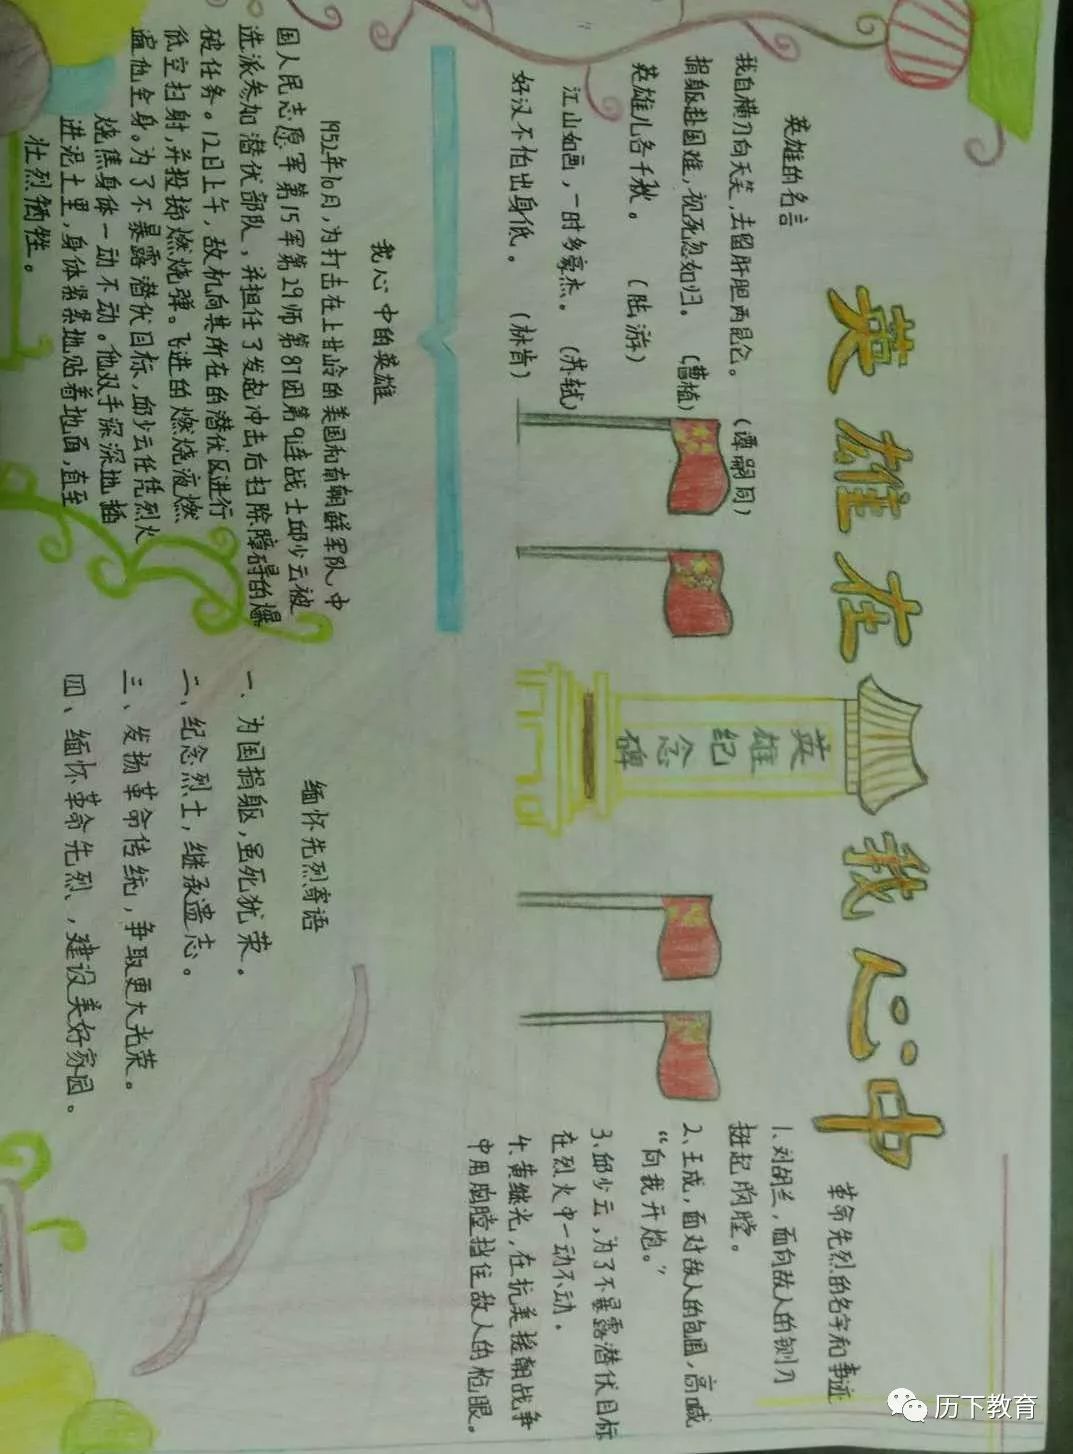 英雄在我心中
英雄的名言
我自横刀向天笑,去留肝胆两昆仑。 (谭嗣同)
捐躯赴国难,视死忽如归。 (曹植)
英雄儿各千秋。 (陆游)
江山如画,一时多豪杰。 (苏轼)
好汉不怕出身低。 (林肯)
英雄
纪念
碑
革命先烈的名字和事迹
1、刘胡兰,面向敌人的铡刀
挺起胸膛。
2、王成,面对敌人的包围,高喊
“向我开炮。”
3、邱少云,为了不暴露潜伏目标
在烈火中一动不动。
4、黄继光,在抗美援朝战争
中用胸膛挡住敌人的枪眼。
我心中的英雄
1952年10月,为打击在上甘岭的美国和南朝鲜军队,中
国人民志愿军第15军第29师第87团第9连战士邱少云被
选派参加潜伏部队,并担任了发起冲击后扫除障碍的爆
破任务。12日上午,敌机向其所在的潜伏区进行
低空扫射,并投掷燃烧弹。飞进的燃烧液燃
遍他全身。为了不暴露潜伏目标,邱少云任凭烈火
烧焦身体一动不动。他双手深深地插
进泥土里,身体紧紧地贴着地面,直至
壮烈牺牲。
缅怀先烈寄语
一、为国捐躯,虽死犹荣。
二、纪念烈士,继承遗志。
三、发扬革命传统,争取更大光荣。
四、缅怀革命先烈、,建设美好家园。
历下教育